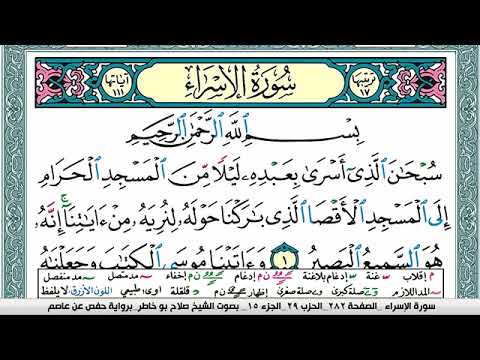 ترتيبها ١٧
سورة الإسراء
آياتها ١١١
بِسْمِ اللَّهِ الرَّحْمَٰنِ الرَّحِيمِ
سُبْحَانَ الَّذِي أَسْرَىٰ بِعَبْدِهِ لَيْلًا مِّنَ الْمَسْجِدِ الْحَرَامِ
إِلَى الْمَسْجِدِ الْأَقْصَا الَّذِي بَارَكْنَا حَوْلَهُ لِنُرِيَهُ مِنْ ءَايَاتِنَا ۚ إِنَّهُ
هُوَ السَّمِيعُ الْبَصِيرُ ١ وَءَاتَيْنَا مُوسَى الْكِتَابَ وَجَعَلْنَاهُ
م إقلاب غنة إدغام بلاغنة ن م إدغام ن م إخفاء مد متصل مد منفصل
المد اللازم صلة كبرى صلة صغرى إظهار ن م قلقلة اوى طبيعي اللون الأزرق لا يلفظ
سورة الإسراء _الصفحة ٢٨٢_ الحزب ٢٩_ الجزء ١٥_ بصوت الشيخ صلاح بو خاطر_برواية حفص عن عاصم